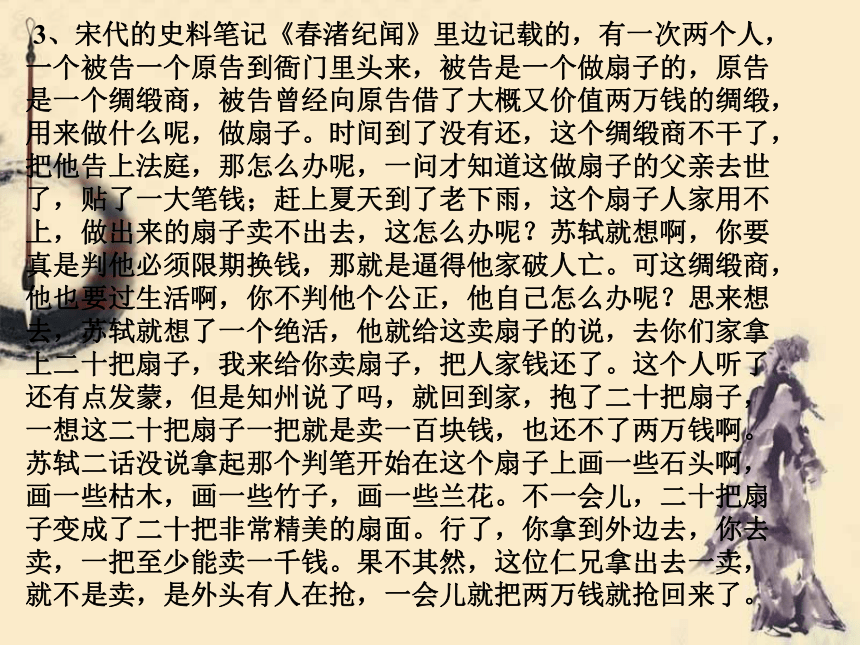 3、宋代的史料笔记《春渚纪闻》里边记载的，有一次两个人，
一个被告一个原告到衙门里头来，被告是一个做扇子的，原告
是一个绸缎商，被告曾经向原告借了大概又价值两万钱的绸缎，
用来做什么呢，做扇子。时间到了没有还，这个绸缎商不干了，
把他告上法庭，那怎么办呢，一问才知道这做扇子的父亲去世
了，贴了一大笔钱；赶上夏天到了老下雨，这个扇子人家用不
上，做出来的扇子卖不出去，这怎么办呢？苏轼就想啊，你要
真是判他必须限期换钱，那就是逼得他家破人亡。可这绸缎商，
他也要过生活啊，你不判他个公正，他自己怎么办呢？思来想
去，苏轼就想了一个绝活，他就给这卖扇子的说，去你们家拿
上二十把扇子，我来给你卖扇子，把人家钱还了。这个人听了
还有点发蒙，但是知州说了吗，就回到家，抱了二十把扇子，
一想这二十把扇子一把就是卖一百块钱，也还不了两万钱啊。
苏轼二话没说拿起那个判笔开始在这个扇子上画一些石头啊，
画一些枯木，画一些竹子，画一些兰花。不一会儿，二十把扇
子变成了二十把非常精美的扇面。行了，你拿到外边去，你去
卖，一把至少能卖一千钱。果不其然，这位仁兄拿出去一卖，
就不是卖，是外头有人在抢，一会儿就把两万钱就抢回来了。